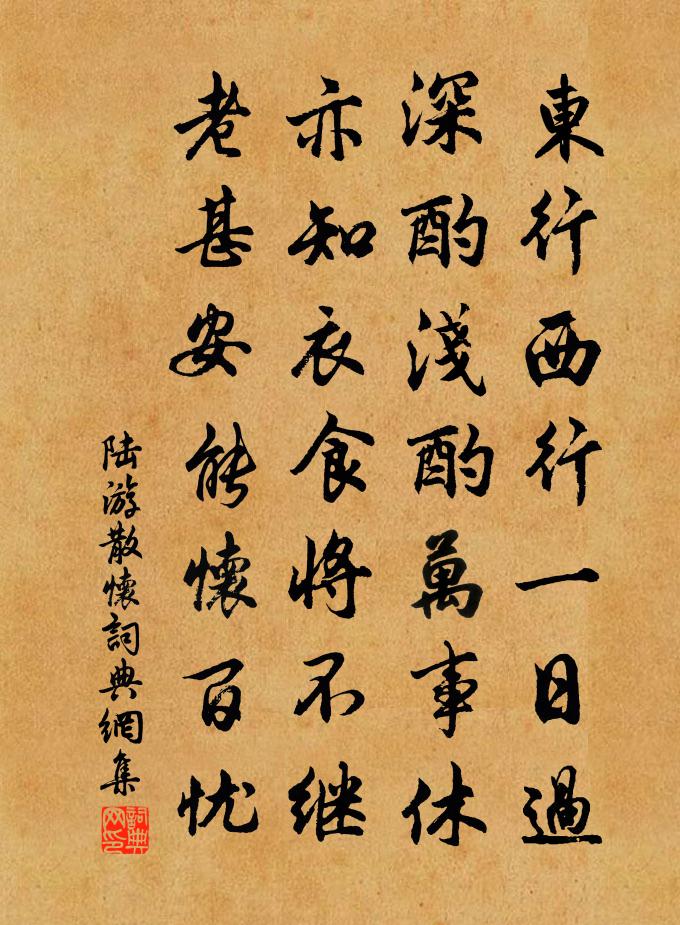 東行西行一日過
深酌淺酌萬事休
亦知衣食將不继
老甚安能懷百忧
陆游散懷詞典網集
詞典网印